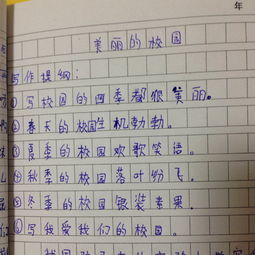 年
美丽的校园
写作提纲：
①写校园的四季都很美丽。
②春天的校园生机勃勃。
③夏季的校园欢歌笑语。
④秋季的校园落叶纷飞。
⑤冬季的校园银装素裹。
⑥写我爱我们的校园。